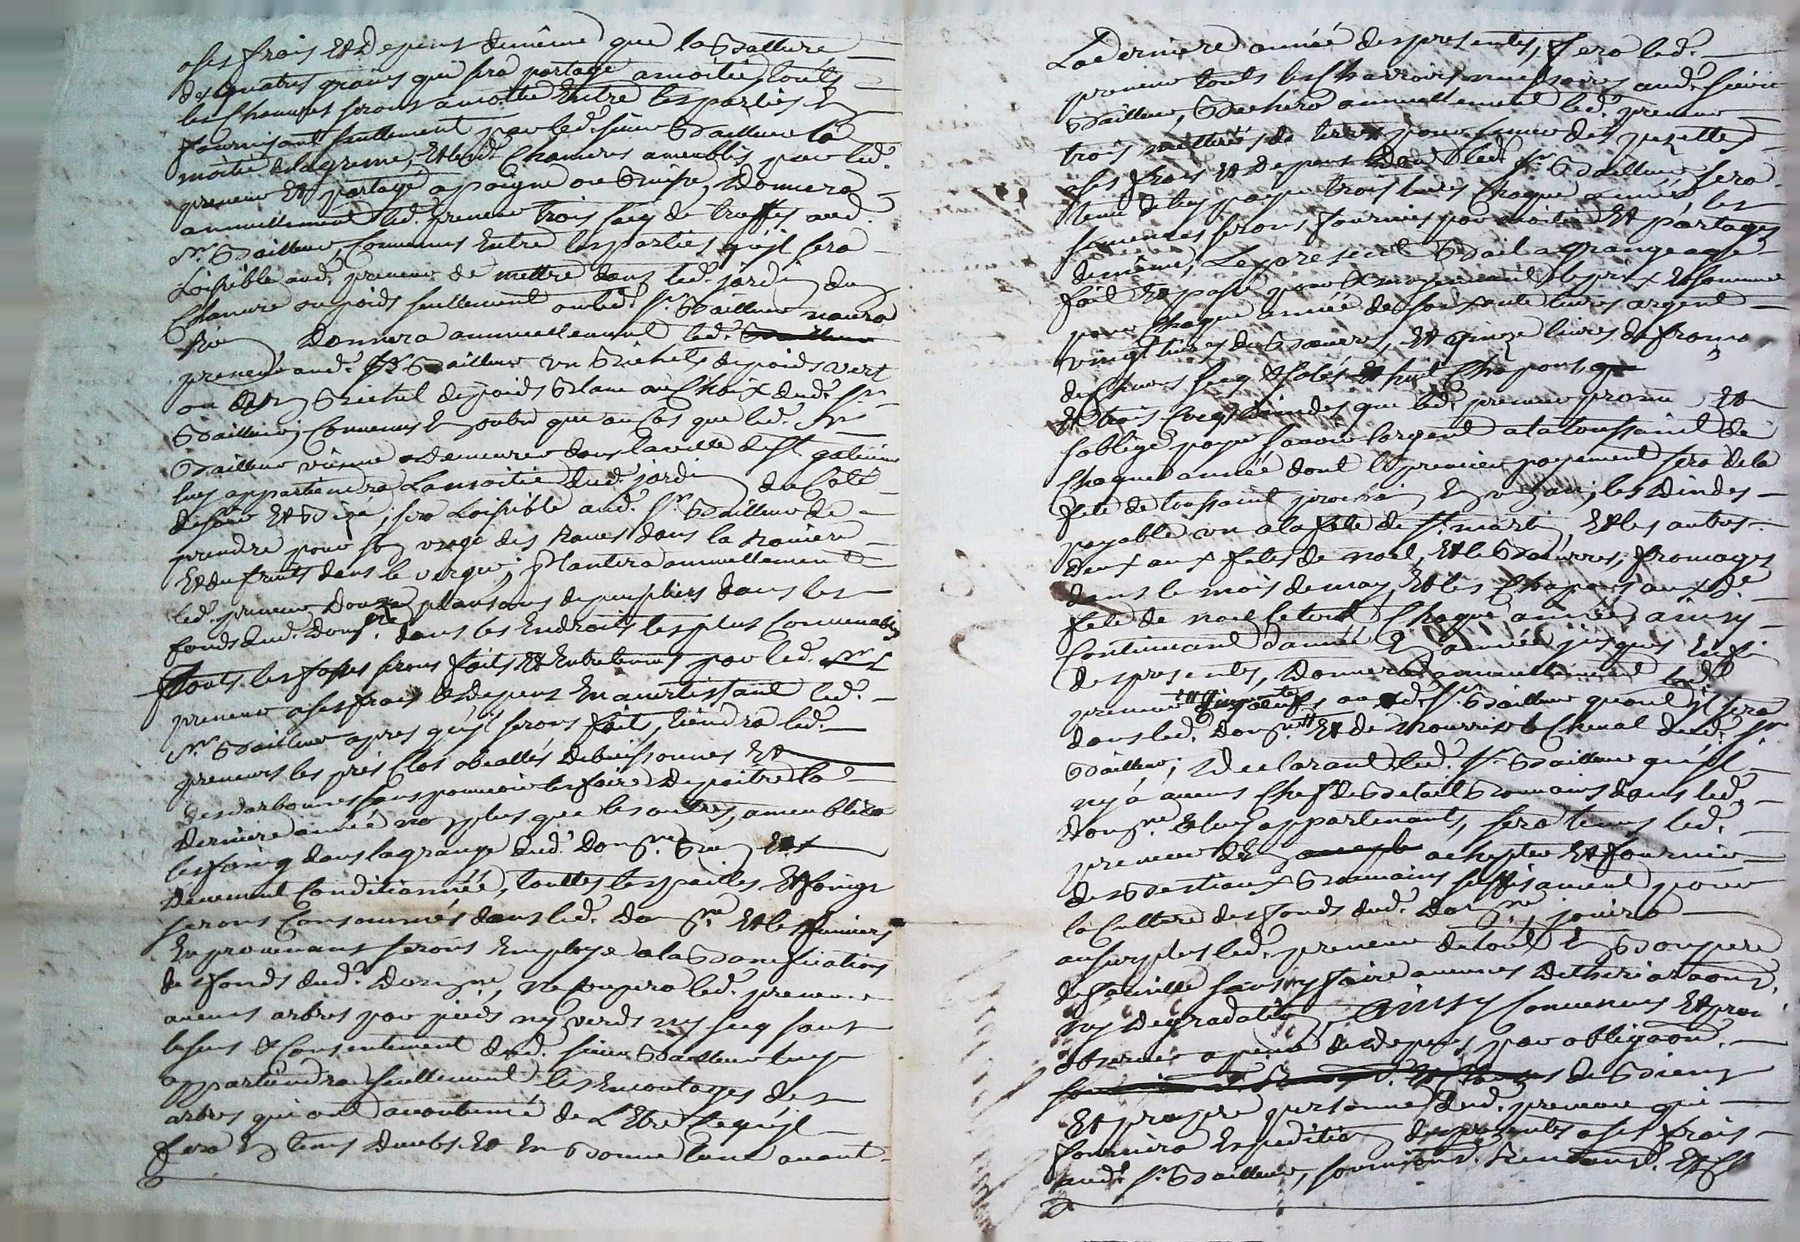 a ses frais et depens de meme que la Batture
des quatres grains qui sera partagé a moitié, touts
les Chanvres seront a moitié Entre les parties En
fournisant seullement par led. sieur Bailleur la
moitié de la greine, Et led. Chanvres ameublis par led.
preneur Et partagé a poigne ou Gruse, Donnera
annuellement led. preneur trois sacq de truffes aud.
Sr. Bailleur, Convenus Entre les parties qu'jl sera
Loisible aud. preneur de mettre dans led. jardin du
Chanvre ou poids seullement ou led. Sr. Bailleur n'aura
Rien Donnera annuellement led. Bailleur
preneur aud. Sr. Bailleur un Bichet de poids vert
ou un Bichet de poids Blanc au Choix dud. Sr.
Bailleur, Convenus En outre que au Cas que led. Sr.
Bailleur vienne a Demeurer dans la ville de St. galmier
luy appartiendra La moitié dud. jardin du Coté
de soir Et Bize, sera Loisible aud. Sr. Bailleur de
prendre pour son usage des Raves dans la Raviere
Et du fruits dans le verger, Plantera annuellement
led. preneur Douze plansons de peupliers dans les
fonds dud. Domne. dans les Endroits les plus Convenables
Touts les fosses serons faits Et Entretenus par led. Sr.
preneur a ses frais & depens En avertissant led.
Sr. Bailleur apres qu'jl serons faits, tiendra led.
preneurs les prés Clos et alles Debuissonnes Et
Desdarbonnes sans pouvoir les faire Depaitre la
Derniere année non plus que les autres, ameublera
les foins dans la grange dud. Domne. Bien Et
Duement Conditionnée, touttes les pailles Et foings
serons Consommés dans led. Domne. Et les fumiers
En provenants serons Employé a la Bonifications
des fonds dud. Domne., ne Coupera led. preneur
aucuns arbres par pieds ny verds ny secq sans
le sceus & Consentement dud. sieur Bailleur luy
appartiendra seullement les Emontages des
arbres qui ont acoutumé de L'Etre Lequ'jl
fera En tems Du & En Bonne Lune avant
La Derniere année des presentes, fera led.
preneur touts les Charrois necessaires aud. sieur
Bailleur, Bechera annuellement led. preneur
trois mettres de terres pour semer des pezettes
a ses frais Et depens Dont led. Sr. Bailleur sera
tenu de luy payer trois livres Chaque année, les
semences serons fournies par moitié Et partages
de meme, Le present Bail a grangeage
fait Et passé pour & moyennant le prix & somme
pour Chaque année de soixante livres argent
vingt livres de Beurres, Et quinze livres de fromages
de Chevres secq & salés & huit Chapons
Et trois Cocq dindes que led. preneur promet Et
s'oblige payer savoir l'argent a la toussaint de
Chaque année dont le premier payement sera de la
fete de toussaint prochain En un an, les Dindes
payable un a la fete de St. martin, Et les autres
deux aux fetes de noel, Et le Beurres, fromages
dans le mois de may, Et les Chapons aux de.
fete de noel le tout Chaque année, ainsy
Continuant d'année En année jusques Et fin
des presentes, Donnera annuellement led.
preneur aud. Sr. Bailleur quand jl sera
dans led. Domne. Et de nourrir le Cheval dud. Sr.
Bailleur, Declarant led. Sr. Bailleur qu'jl
ny a aucuns Chef de Betail Bomains dans led.
Domne. & luy appartenants, sera tenus led.
preneur d'En achepter Et fournir
des Bestiaux Bomains suffisament pour
la Culture des fonds dud. Domne., jouira
au surplus led. preneur de tout En Bon pere
de famille sans y faire aucunes Detheriora͠ons,
ny Degradation, Ainsy Convenus Et promis
observer a peine des depens, par obliga͠on,
de Biens
Et propre personne dud. preneur qui
fournira Expedition des presentes a ses frais
aud. Sr. Bailleur, soumissions. Renonciat. Et C